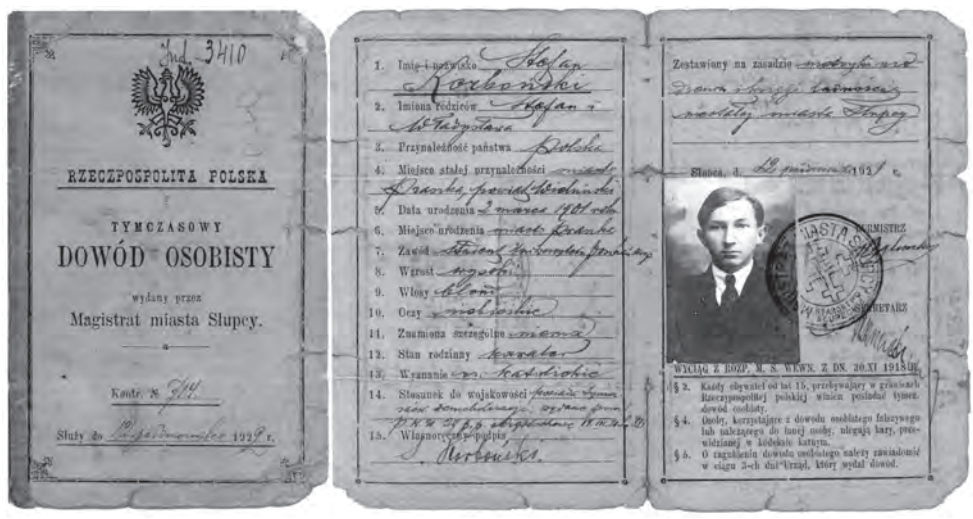 Ind. 3410
RZECZPOSPOLITA POLSKA
TYMCZASOWY
DOWÓD OSOBISTY
wydany przez
Magistrat miasta Słupcy.
Kontr. №
Służy do 12 października 1929 r.
1. Imię i nazwisko Stefan
Korboński
2. Imiona rodziców Stefan i
Władysława
3. Przynależność państwa Polska
4. Miejsce stałej przynależności miasto
Praszka, powiat Wieluński
5. Data urodzenia 2 marca 1901 roku
6. Miejsce urodzenia miasto Praszka
7. Zawód student Uniwersytetu
8. Wzrost wysoki
9. Włosy blond
10. Oczy niebieskie
11. Znamiona szczególne niema
12. Stan rodzinny kawaler
13. Wyznanie rz. katolickie
14. Stosunek do wojskowości posiada
wydane przez
P.K.U. 28 p.p.
15. Własnoręczny podpis
S. Korboński
Zestawiony na zasadzie metryki uro
dzenia i księgi ludności
miasta Słupcy
Słupca, d. 12 października 1921 r.
BURMISTRZ
SEKRETARZ
WYCIĄG Z ROZP. M. S. WEWN. Z DN. 30.XI 1918 R.
§ 2. Każdy obywatel od lat 15, przebywający w granicach
Rzeczypospolitej polskiej winien posiadać tymcz.
dowód osobisty.
§ 4. Osoby, korzystające z dowodu osobistego fałszywego
lub należącego do innej osoby, ulegają kary, prze-
widzianej w kodeksie karnym.
§ 5. O zagubieniu dowodu osobistego należy zawiadomić
w ciągu 3-ch dni Urząd, który wydał dowód.